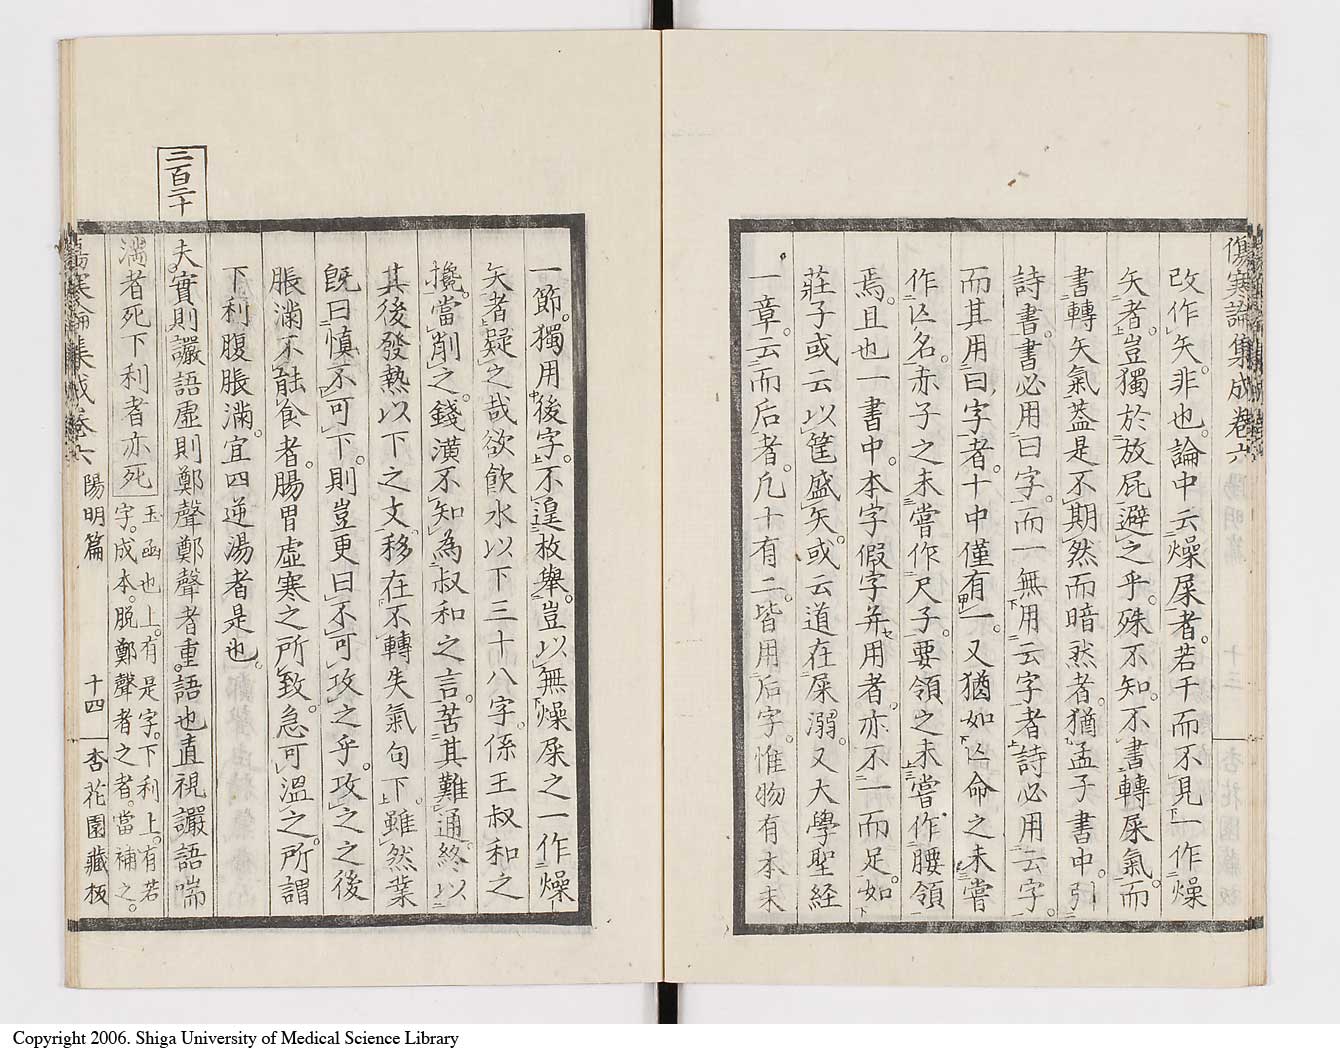 傷寒論集成卷六
改作矢。非也。論中云燥屎者。若干而不見一作燥
矢者。豈獨於放屁避之乎。殊不知。不書轉屎氣。而
書轉矢氣蓋是不期然而暗然者。猶孟子書中。引
詩書。書必用曰字。而一無用云字者詩必用云字。
而其用曰字者。十中僅有一。又猶如亾命之未嘗
作亾名。赤子之未嘗作尺子。要領之未嘗作腰領
焉。且也一書中。本字假字并用者。亦不一而足。如
莊子或云以筐盛矢。或云道在屎溺。又大學聖経
一章。云而后者。凡十有二。皆用后字。惟物有本末
一節。獨用後字。不遑枚舉。豈以無燥屎之一作燥
矢者疑之哉欲飮水以下三十八字。係王叔和之
攙。當削之。錢潢不知為叔和之言。苦其難通。終以
其後發熱以下之文。移在不轉失氣句下。雖然業
既曰慎不可下。則豈更曰不可攻之乎。攻之之後
脹滿不能食者。腸胃虛寒之所致。急可溫之。所謂
下利腹脹滿。宜四逆湯者是也。
二百二十
夫實則讝語虛則鄭聲鄭聲者重。語也直視讝語喘
滿者死下利者亦死
玉函也上。有是字。下利上。有若
字。成本。脱鄭聲者之者。當補之。
陽明篇
十四
杏花園藏板